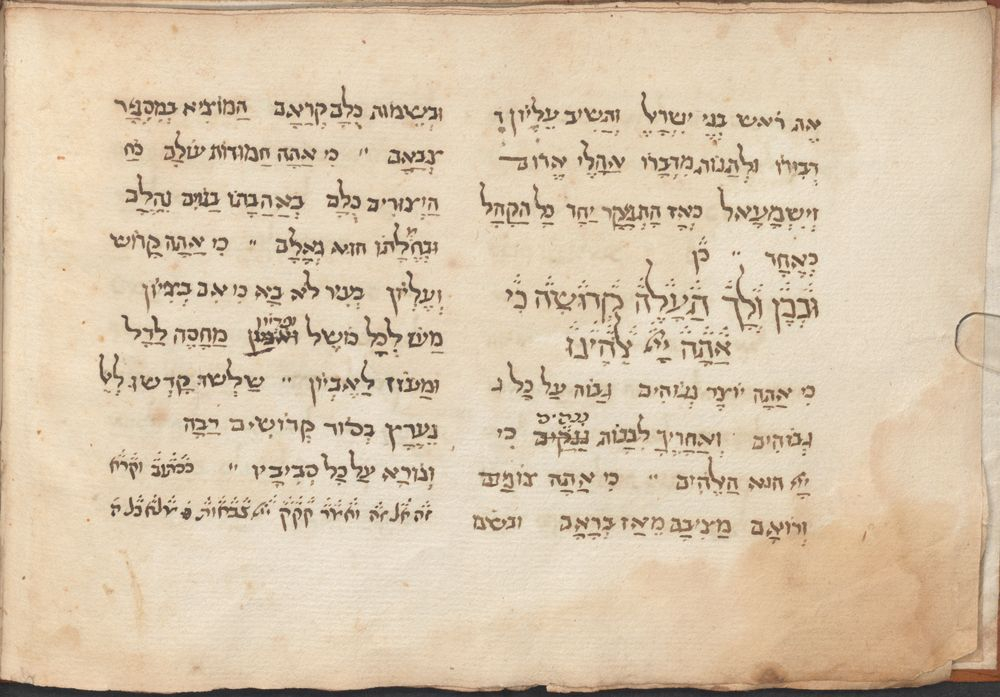 את ראש בני ישראל ותשיב עליון ד
דבירו ולחנות מדברו אהלי אדום
וישמעאל כאז התפקד יחד כל הקהל
כאחד ״ כן
ובכן ולך תעלה קדושה כי
אתה יי אלהינו
כי אתה יוצר גבוהים גבוה על כל ג
גבוהים ואחריך לבנות כי
יי הוא האלהים ״ כי אתה צומם
ורואם מציבם מאז בראם ובשם
ובשמות כלם קראם המוציא במספר
צבאם ״ כי אתה חמודות עולם כח
היצורים כלם באהבתו בנוים נהלם
ובחמלתו הוא גאלם ״ כי אתה קדוש
ועליון בעיר לא בא כי אם בציון
מעז לכל מושל מחסה לדל
ומעוז לאביון ״ שלשו קדשו לאל
נערץ בסוד קדושים רבה
ונורא על כל סביביו ״ ככתוב וקרא
זה אל זה ואמר קקק יי צבאות מלא כל ה